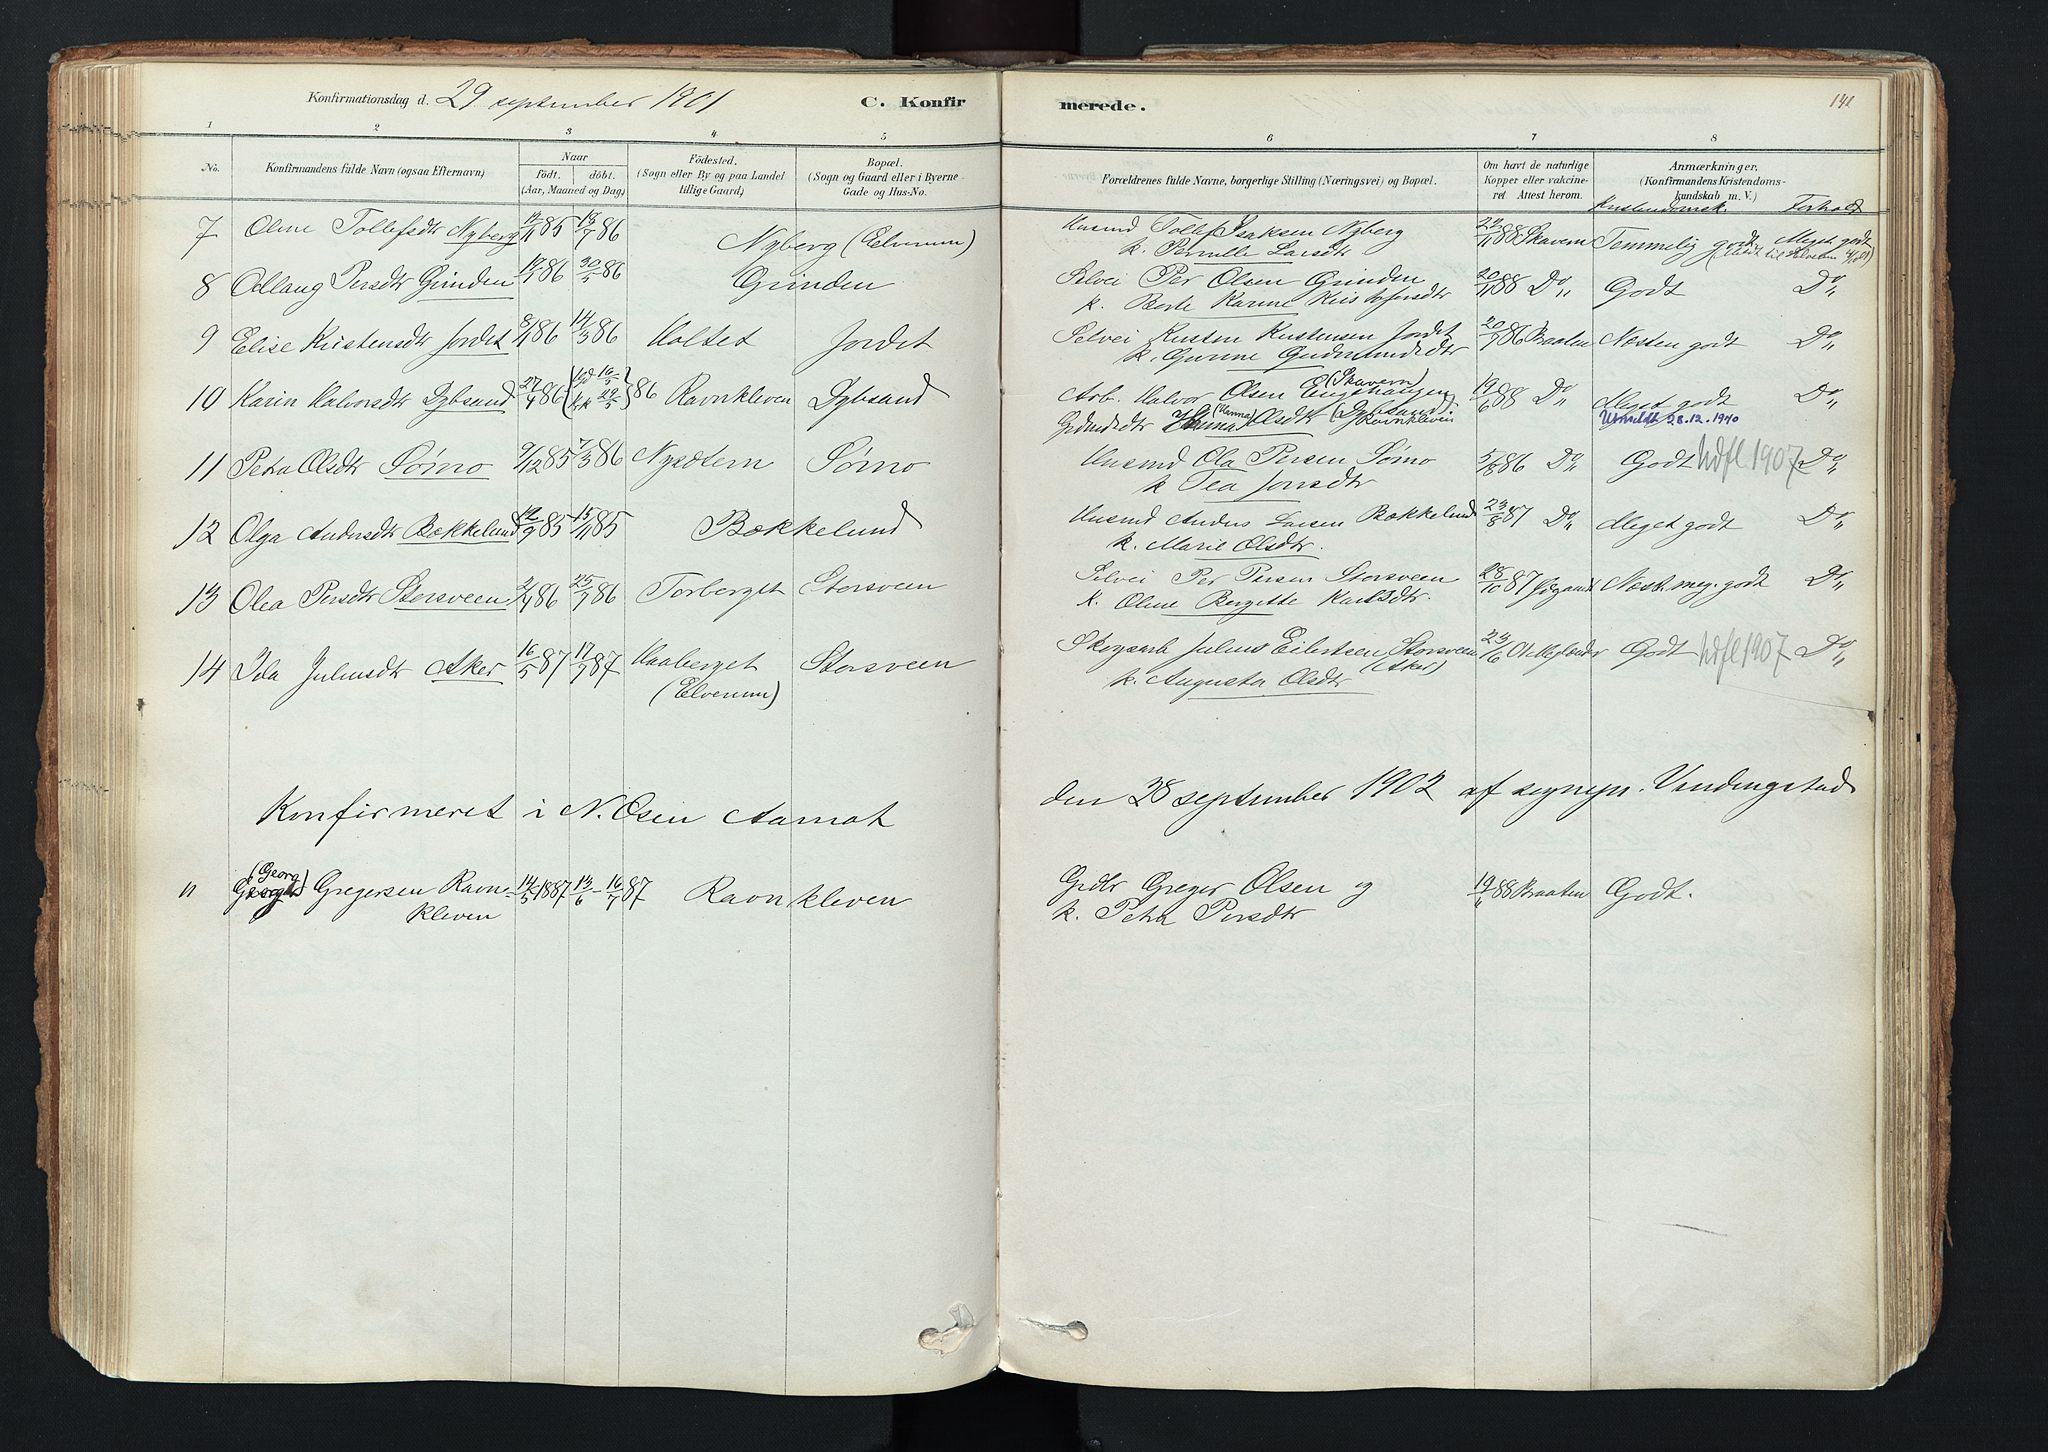 Konfirmationsdag d. 29 september 1901 C. Konfirmerede. 141
1 2 3 4 5 6 7 8
No. Konfirmandens fulde Navn (ogsaa Efternavn) Naar Födt. döbt. (Aar, Maaned og Dag) Födested. (Sogn eller By og paa Landet tillige Gaard) Bopæl. (Sogn og Gaard eller i Byerne Gade og Hus-No. Forældrenes fulde Navne, borgerlige Stilling (Næringsvei) og Bopæl. Om havt de naturlige Kopper eller vakcineret Attest herom. Anmærkninger. (Konfirmandens Kristendomskundskab m. V.)
Kristendomsk. Forhold
7 Oline Tollefsdtr Nyberg 14/11 85 18/7 86 Nyberg (Elverum) Husmd Tollef Isaksen Nyberg 22/11 88 Skavern Temmelig godt Meget godt
k. Pernille Larsdtr
8 Odlaug Persdtr Grinden 86 30/5 86 Grinden Selvei Per Olsen Grinden 20/11 88 Do Godt Do
k. Berte Karine Kristofersdtr
9 Elise Kristensdtr Jordet 86 14/3 86 Holtet Jordet Selvei Kristen Kristensen Jordet 20/7 86 Braaten Næsten godt Do
k. Gurine Gudmundsdtr
10 Karin Halvorsdtr Dybsand 27/4 86 86 Ravnkleven Dybsand Arb. Halvor Olsen Engehaugen (Skavern) 19/6 88 Do Meget godt Do
Grdmdtr (Hanna) Olsdtr (Dybsand Ravnkleven Utmeldt 28.12.1940
11 Petra Olsdtr Sörno 9/12 85 7/3 86 Nysætern Sörno Husmd Ola Persen Sörno 5/8 86 Do Godt Udfl 1907 Do
k Tea Jonsdtr
12 Olga Andersdtr Bækkelund 12/9 85 15/11 85 Bækkelund Husmd Anders Larsen Bækkelund 23/8 87 Do Meget godt Do
k. Marie Olsdtr.
13 Olea Persdtr Storsveen 2/4 86 25/7 86 Torberget Storsveen Selvei Per Persen Storsveen 28/10 87 Næst. meg. godt Do
k. Oline Bergette Karlsdtr.
14 Ida Juliusdtr Aker 16/5 87 17/7 87 Haaberget Storsveen Skogsarb Julius Eilertsen Storsveen 23/6 Godt Udfl 1907 Do
(Elverum) k. Augusta Olsdtr (Aker)
Konfirmeret i N. Osen Aamot den 28 september 1902 af sognepr. Vendingstad
(Georg)
" Georg Gregersen Ravn- 14/5 1887 13/6 - 16/7 87 Ravnkleven Grdbr Greger Olsen og 19/6 88 Braaten Godt.
kleven k. Petra Persdtr